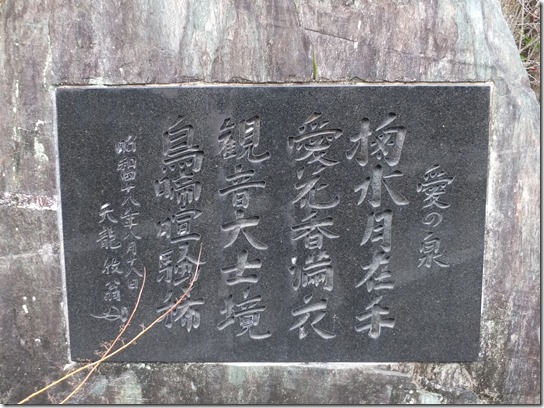 愛の泉
掬水月在手
愛花香満衣
観音大士境
鳥喘喧騒稀
昭和四十八年八月十八日
天龍牧翁